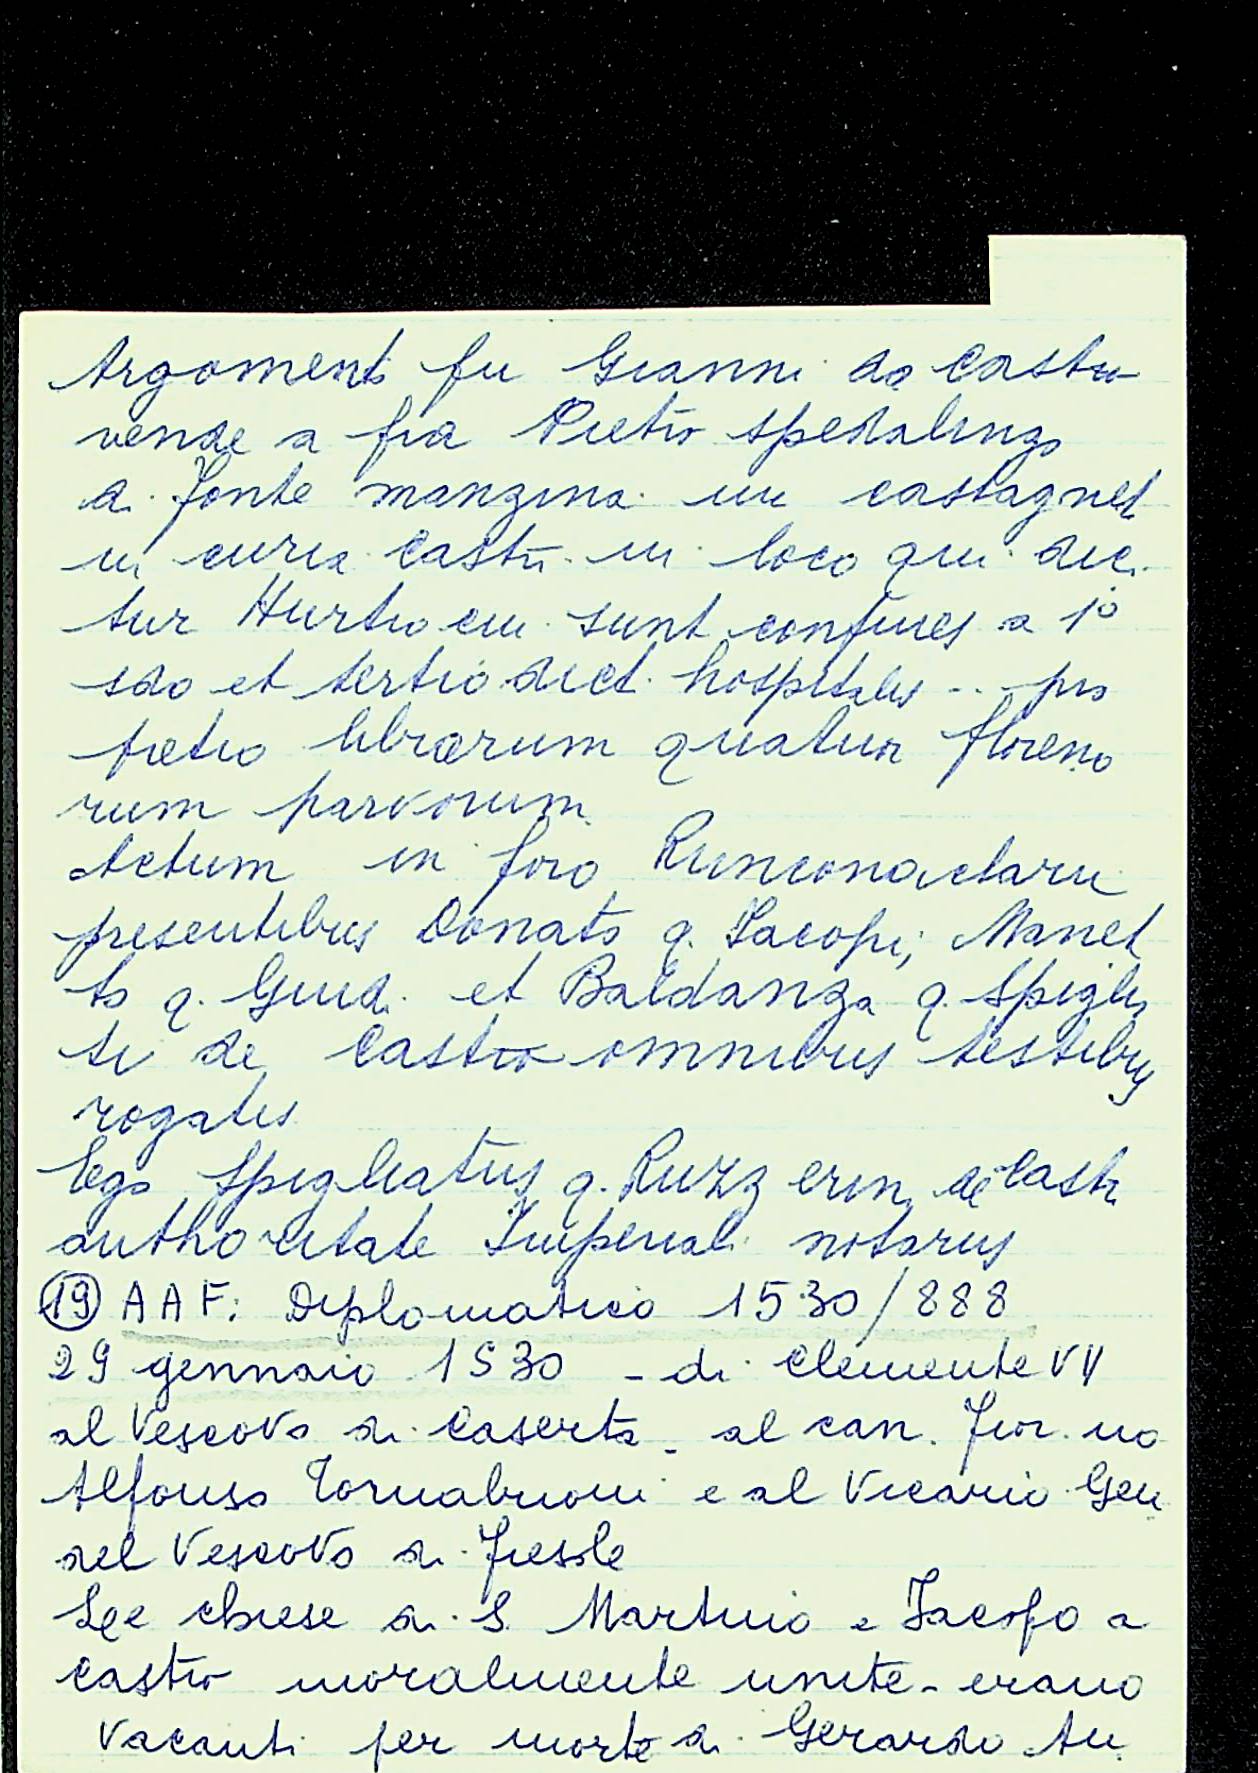 Argoment. fu Gianni da Castro
vende a fra Pietro spedalingo
di Fonte manzina un castagnet
in curia Castri in loco qui dici
tur Hurtio cui sunt confines a 1°
sdo et tertio dict. hospitalis -- pro
pretio librarum quatuor floreno
rum parvorum
Actum in foro
presentibus Donato q. Iacopi, Manet
to q. Guid. et Baldanza q. Spiglia
ti de Castro omnibus testibus
rogatis
Ego Spigliatus q. de Castr
authoritate Imperiali notarius
19 AAF: Diplomatico 1530/888
29 gennaio 1530 - di Clemente VII
al Vescovo di Caserta - al can. Fior. no
Alfonso Tornabuoni e al Vicario Gen
del Vescovo di Fiesole
Lee chiese di S. Martino e Iacopo a
Castro moralmente unite - erano
vacanti per morte di Gerardo